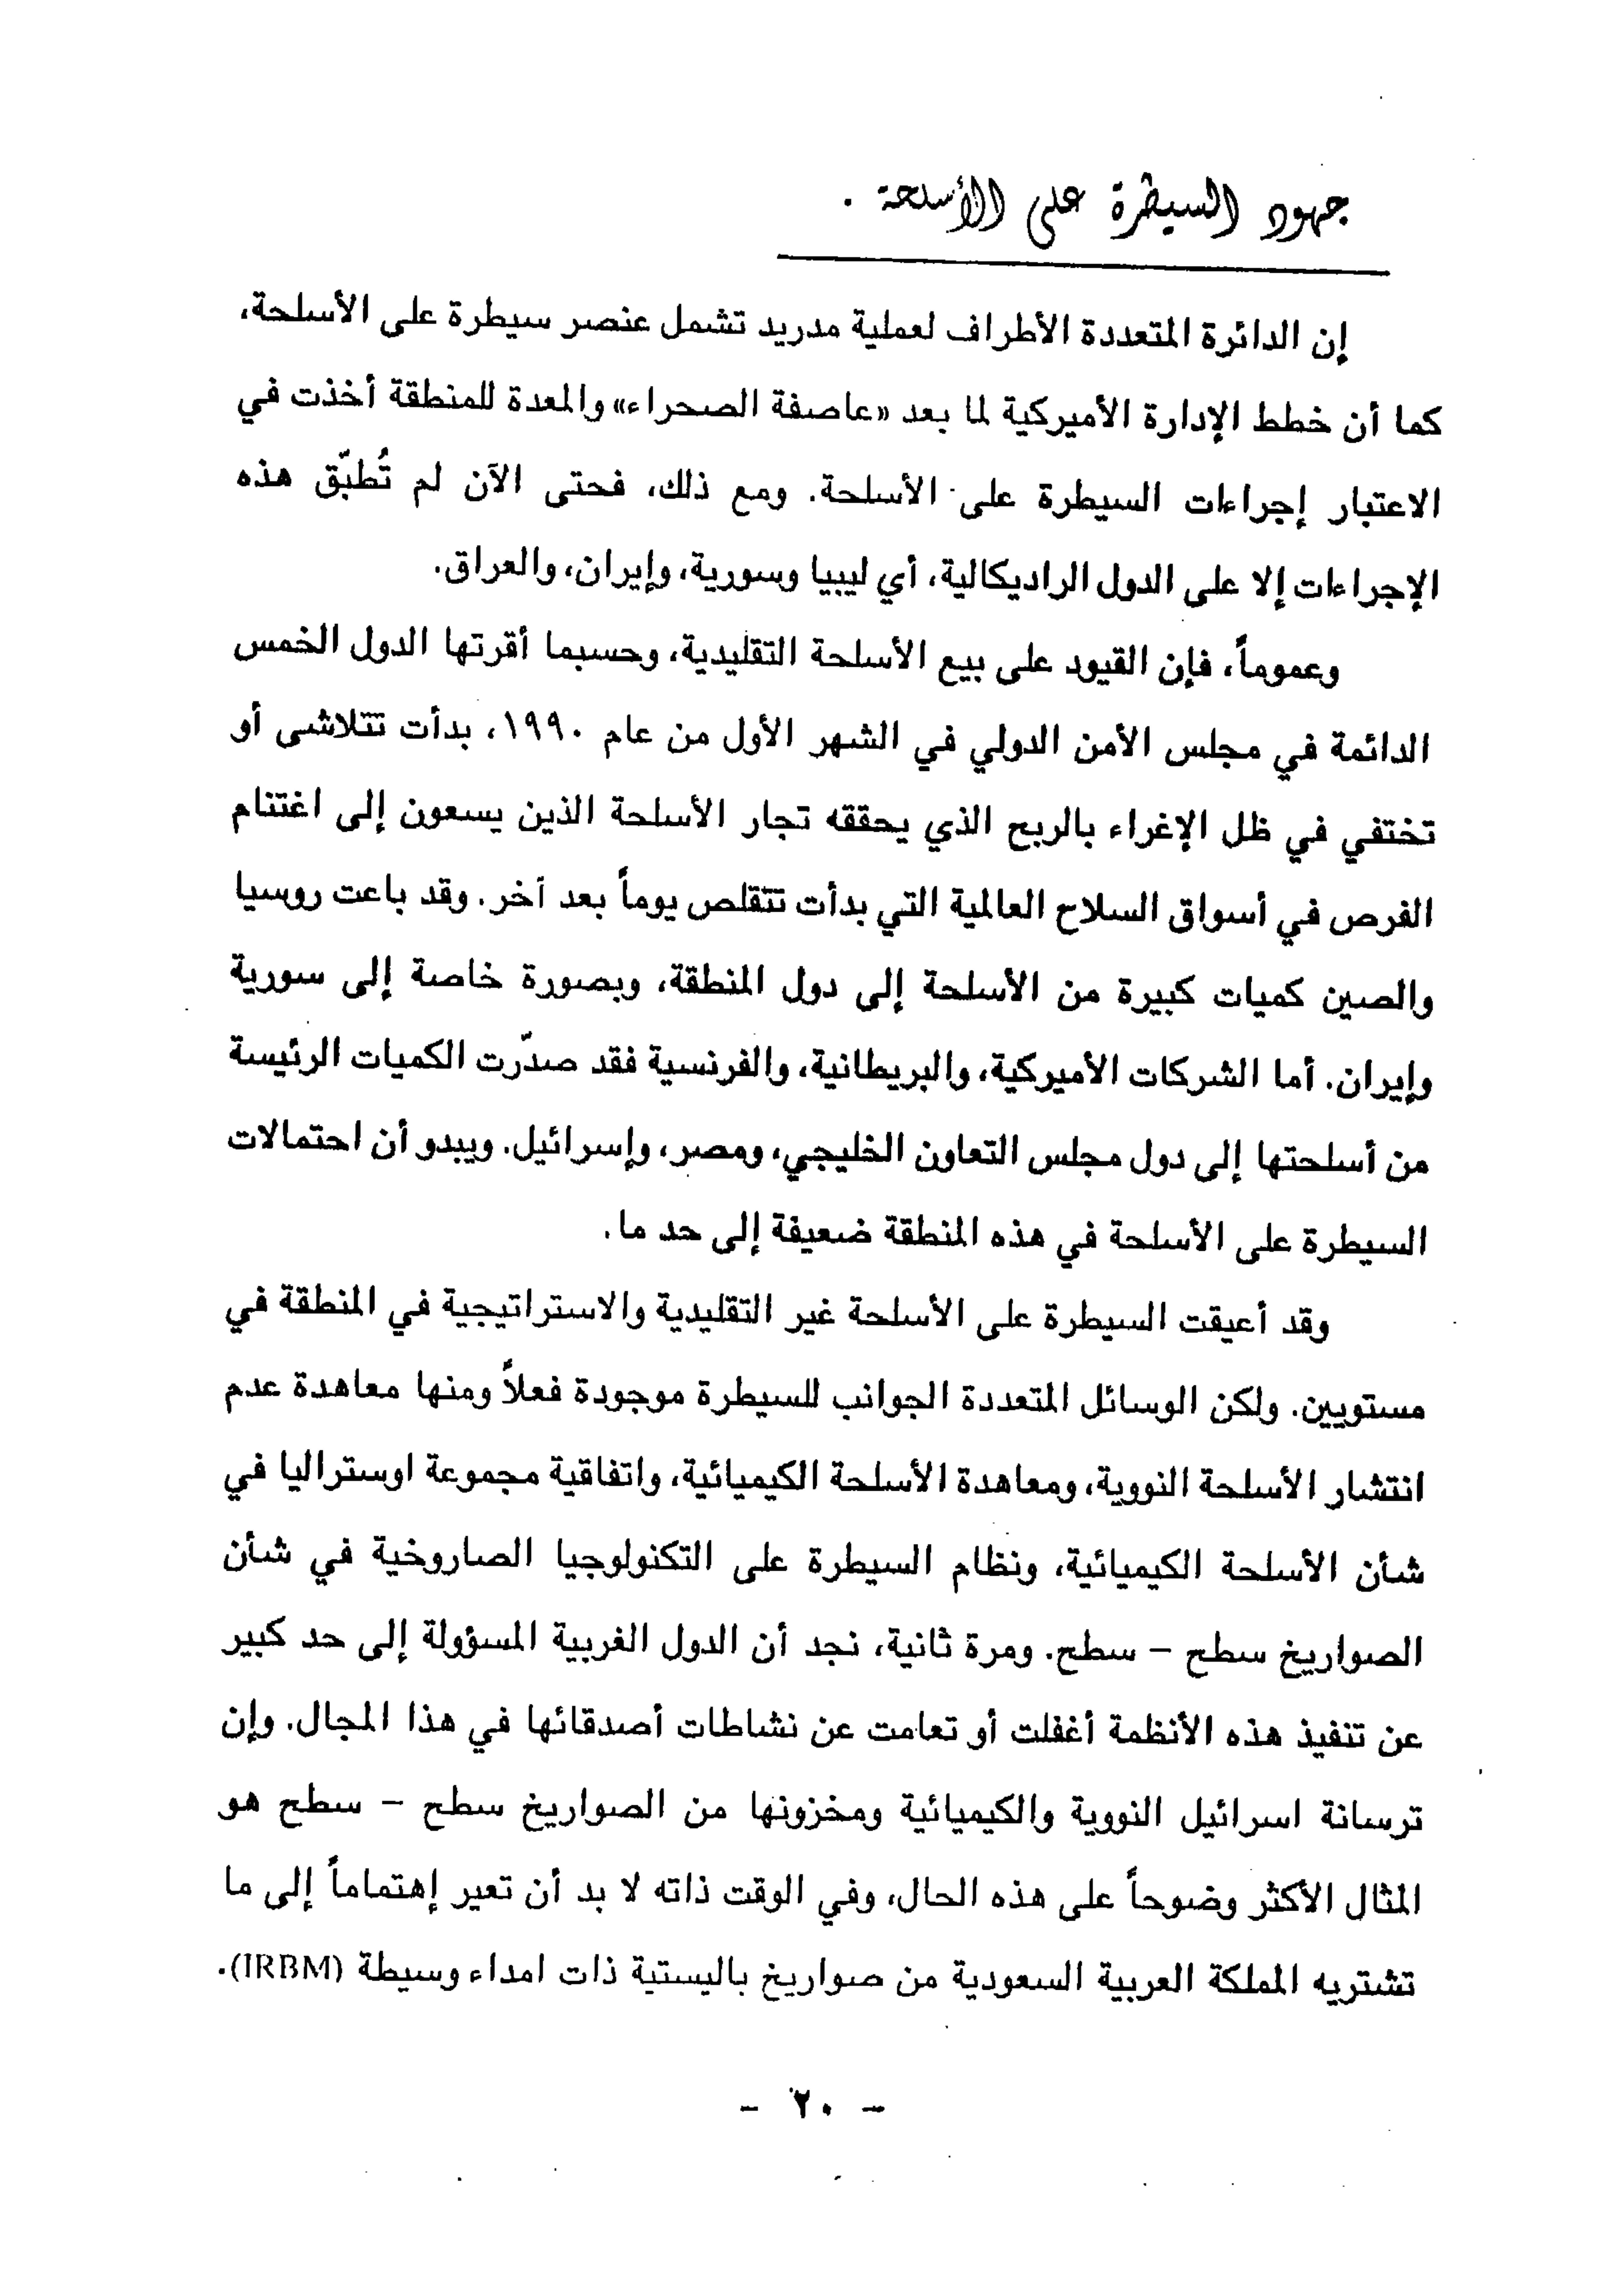 جهود السيطرة على الأسلحة .
إن الدائرة المتعددة الأطراف لعملية مدريد تشمل عنصر سيطرة على الأسلحة،
كما أن خطط الإدارة الأميركية لما بعد «عاصفة الصحراء» والمعدة للمنطقة أخذت في
الاعتبار إجراءات السيطرة على الأسلحة. ومع ذلك، فحتى الآن لم تُطبّق هذه
الإجراءات إلا على الدول الراديكالية، أي ليبيا وسورية، وإيران، والعراق.
وعموماً، فإن القيود على بيع الأسلحة التقليدية، وحسبما أقرتها الدول الخمس
الدائمة في مجلس الأمن الدولي في الشهر الأول من عام ١٩٩٠، بدأت تتلاشى أو
تختفي في ظل الإغراء بالربح الذي يحققه تجار الأسلحة الذين يسعون إلى اغتنام
الفرص في أسواق السلاح العالمية التي بدأت تتقلص يوماً بعد آخر. وقد باعت روسيا
والصين كميات كبيرة من الأسلحة إلى دول المنطقة، وبصورة خاصة إلى سورية
وإيران. أما الشركات الأميركية، والبريطانية، والفرنسية فقد صدّرت الكميات الرئيسة
من أسلحتها إلى دول مجلس التعاون الخليجي، ومصر، وإسرائيل. ويبدو أن احتمالات
السيطرة على الأسلحة في هذه المنطقة ضعيفة إلى حد ما.
وقد أعيقت السيطرة على الأسلحة غير التقليدية والاستراتيجية في المنطقة في
مستويين. ولكن الوسائل المتعددة الجوانب للسيطرة موجودة فعلاً ومنها معاهدة عدم
انتشار الأسلحة النووية، ومعاهدة الأسلحة الكيميائية، واتفاقية مجموعة اوستراليا في
شأن الأسلحة الكيميائية، ونظام السيطرة على التكنولوجيا الصاروخية في شأن
الصواريخ سطح – سطح. ومرة ثانية، نجد أن الدول الغربية المسؤولة إلى حد كبير
عن تنفيذ هذه الأنظمة أغفلت أو تعامت عن نشاطات أصدقائها في هذا المجال. وإن
ترسانة اسرائيل النووية والكيميائية ومخزونها من الصواريخ سطح – سطح هو
المثال الأكثر وضوحاً على هذه الحال، وفي الوقت ذاته لا بد أن تعير إهتماماً إلى ما
تشتريه المملكة العربية السعودية من صواريخ باليستية ذات امداء وسيطة (IRBM).
– ٢٠ –